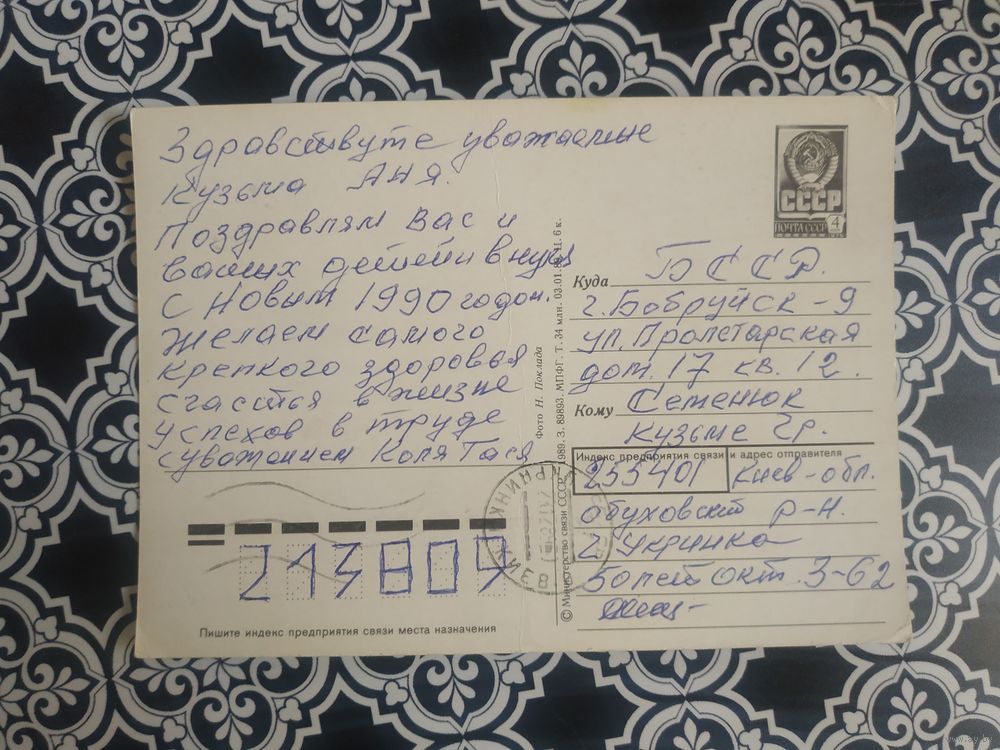 Здравствуте уважаемие
Кузьма Аня.
Поздравлям Вас и
ваших детей и внуц
С Новым 1990 годом.
Желаем самого
крепкого здоровья
счастья в жизне
успехов в труде
с уважением Коля Тася
СССР
ПОЧТА СССР
4
Куда БССР.
г. Бобруйск-9
ул. Пролетарская
дом. 17 кв. 12.
Кому Семенюк
Кузьме Гр.
Индекс предприятия связи и адрес отправителя
255401 Киев-обл.
обуховский р-н.
г. Укринка
3-62
213809
Пишите индекс предприятия связи места назначения
Фото Н. Поклада
© Министерство связи СССР. 1989. З. 89893. МПФГ. Т. 34 млн. 03.01.89. Ц. 6 к.